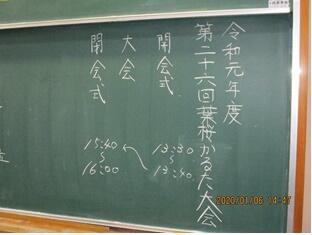 令和元年度
第二十六回葉桜かるた大会
開会式 13:30
〜
13:40
大会
閉会式 15:40
〜
16:00
2020/01/06 14:47